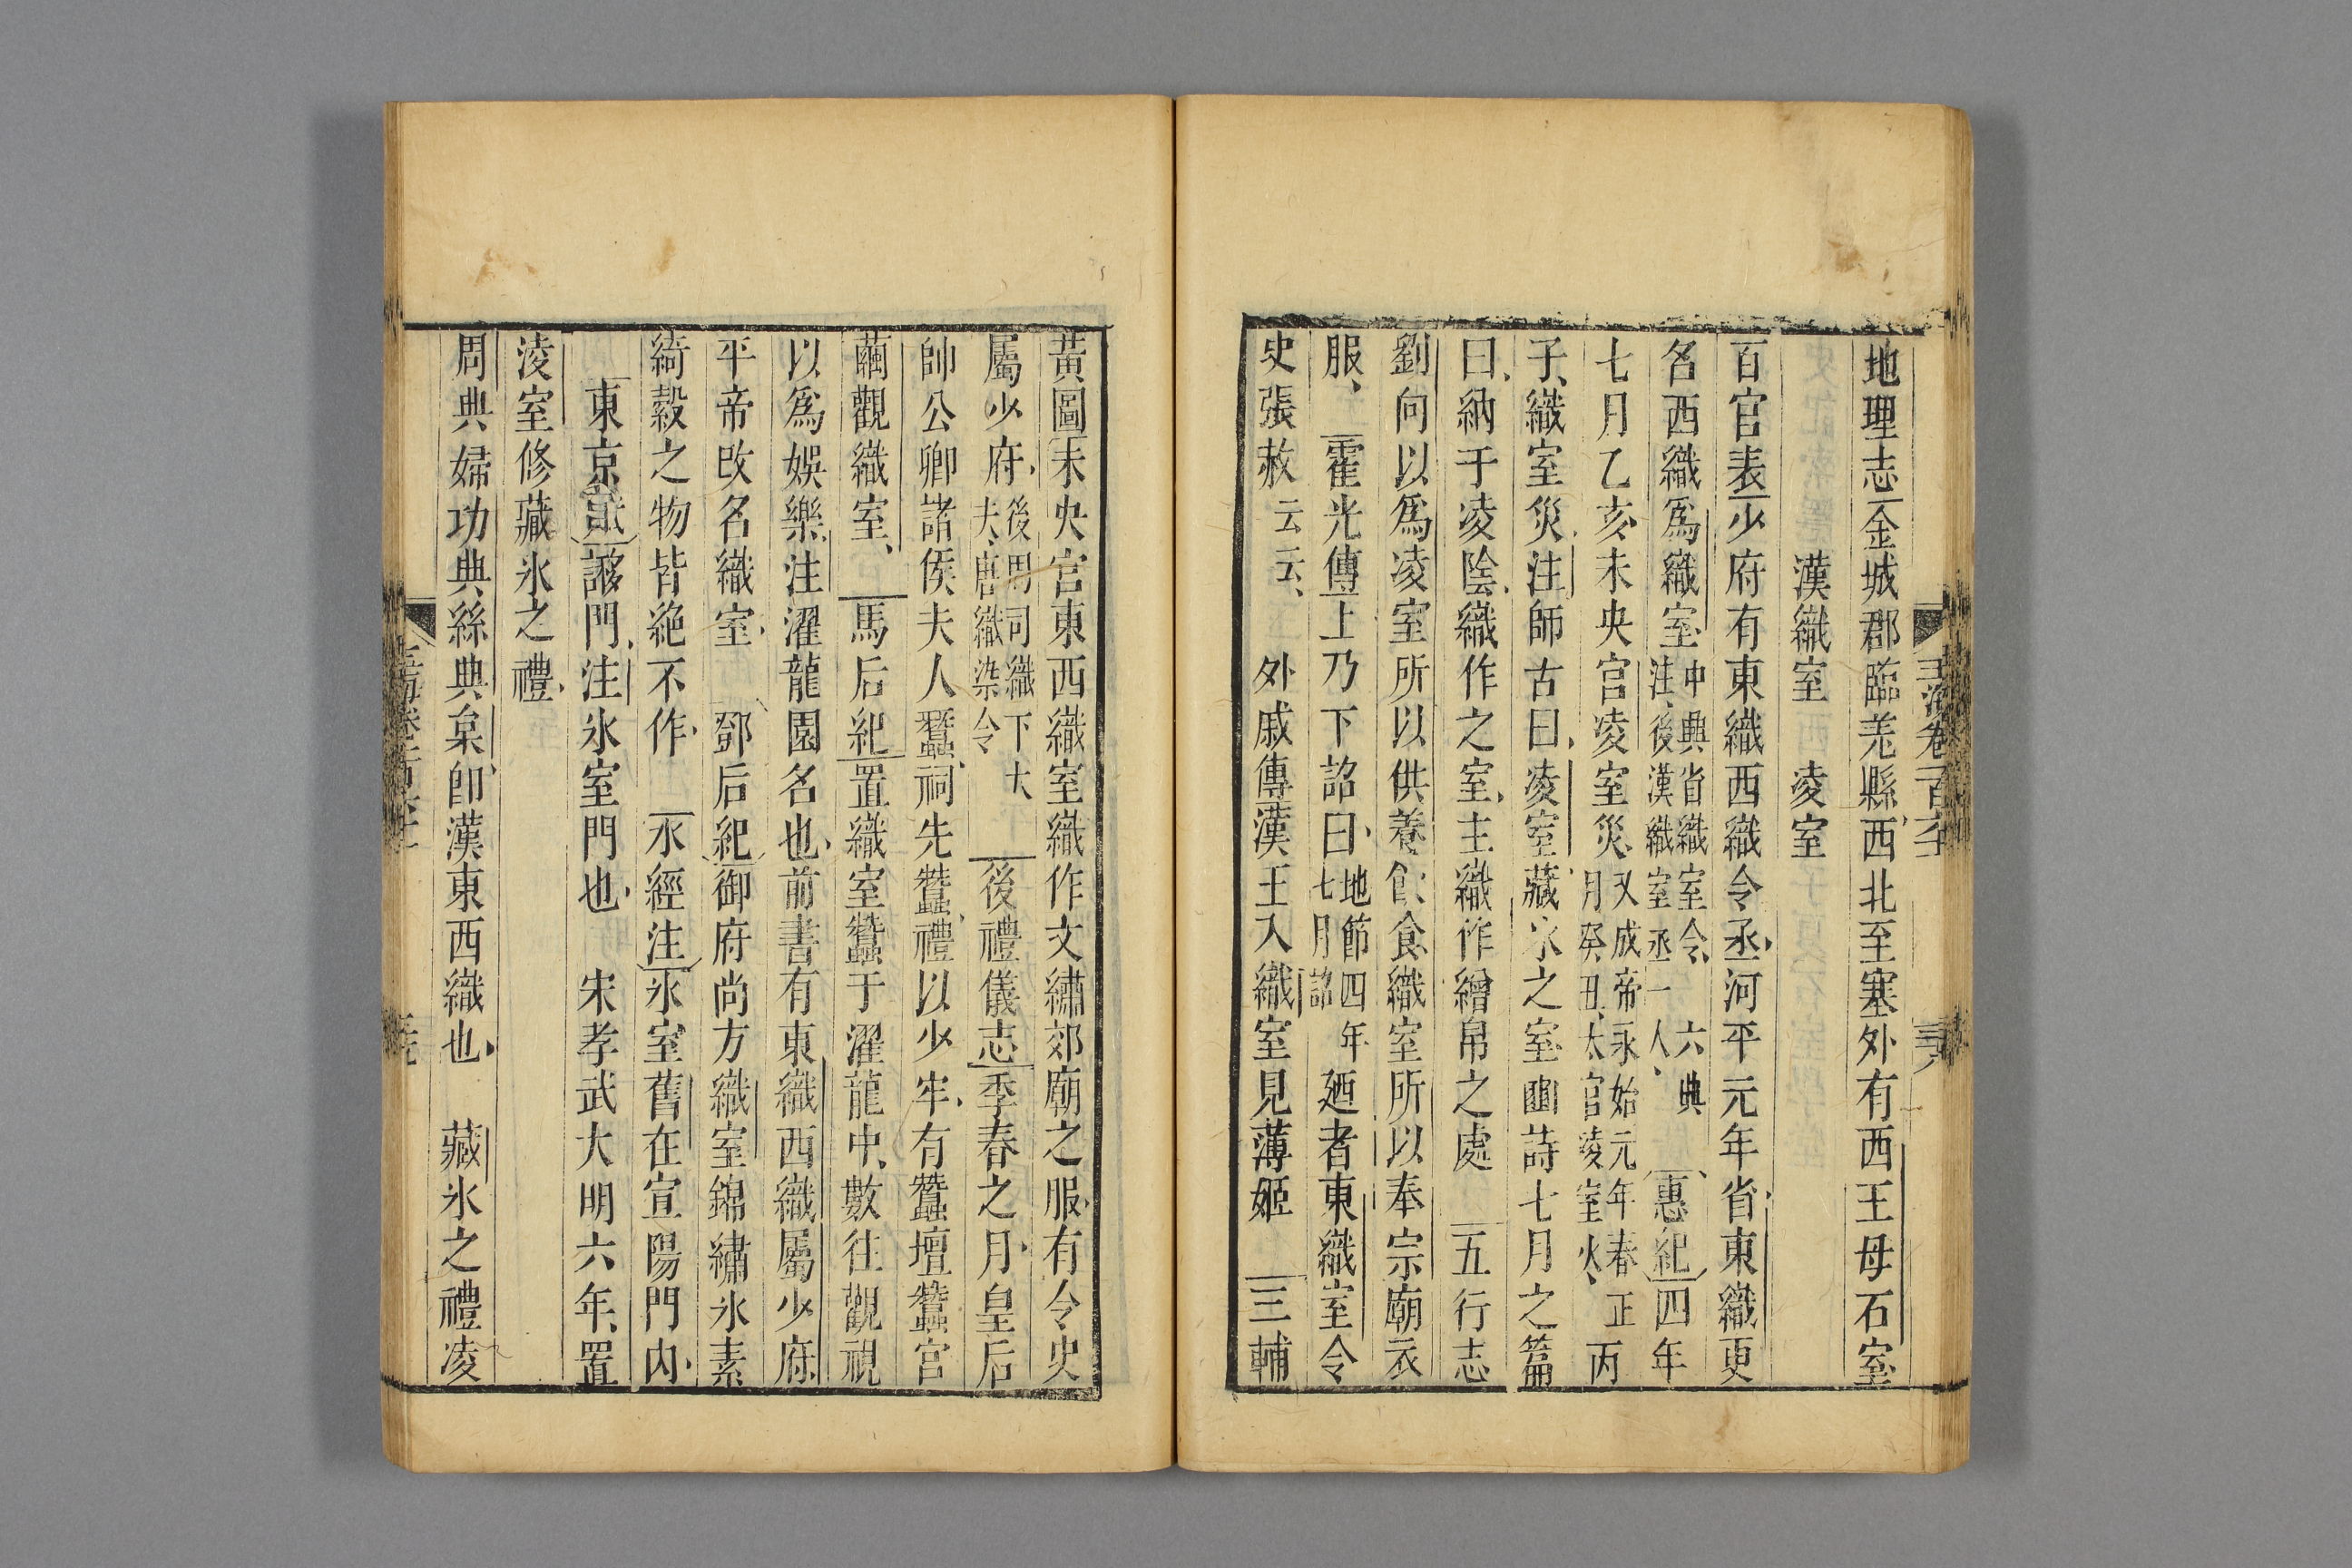 地理志金城郡臨羌縣西北至塞外有西王母石室
漢織室 凌室
百官表少府有東織西織令丞河平元年省東織更
名西織爲織室中典省織室令六典注後漢織室丞一人惠紀四年
七月乙亥未央宫凌室災又成帝永始元年春正月癸丑太官凌室火丙
子織室災注師古曰凌室藏冰之室豳詩七月之篇
曰納于凌陰織作之室主織作繒帛之處 五行志
劉向以爲凌室所以供養飲食織室所以奉宗廟衣
服 霍光傳上乃下詔曰地節四年七月詔廼者東織室令
史張赦云云 外戚傳漢王入織室見薄姬 三輔
黃圖未央宮東西織室織作文繡郊廟之服有令史
屬少府後周司織下大夫唐織染令 後禮儀志季春之月皇后
帥公卿諸侯夫人蠶祠先蠶禮以少牢有蠶壇蠶宮
繭觀織室 馬后紀置織室蠶于濯龍中數往觀視
以爲娛樂注濯龍園名也前書有東織西織屬少府
平帝改名織室 鄧后紀御府尚方織室錦繡氷素
綺縠之物皆絶不作 水經注氷室舊在宣陽門内
東京賦謻門注氷室門也 宋孝武大明六年置
凌室修藏氷之禮
周典婦功典絲典枲卽漢東西織也 藏氷之禮凌